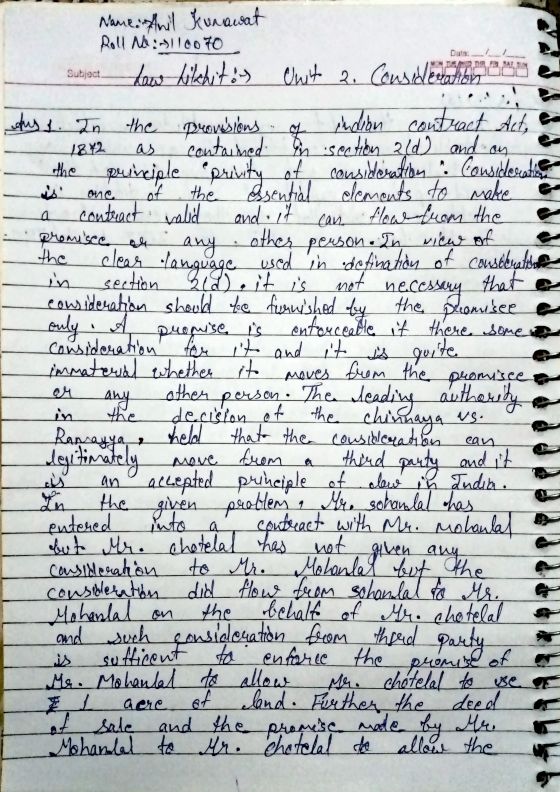 Name:→ Anil Kumawat
Roll No:→ 110070
Date: __/__/__
MON TUE WED THR FRI SAT SUN
Subject Law Likhit:→ Unit 2. Consideration
Ans 1. In the provisions of indian contract Act,
1872 as contained in section 2(d) and on
the principle "privity of consideration". Consideration
is one of the essential elements to make
a contract valid and it can flow from the
promisee or any other person. In view of
the clear language used in defination of consideration
in section 2(d), it is not necessary that
consideration should be furnished by the promisee
only. A promise is enforceable if there some
consideration for it and it is quite
immaterial whether it moves from the promisee
or any other person. The leading authority
in the decision of the chinnaya vs.
Ramayya, held that the consideration can
legitimately move from a third party and it
is an accepted principle of law in India.
In the given problem, Mr. sohanlal has
entered into a contract with Mr. mohanlal
but Mr. chotelal has not given any
consideration to Mr. Mohanlal but the
consideration did flow from sohanlal to Mr.
Mohanlal on the behalf of Mr. chotelal
and such consideration from third party
is sufficent to enforce the promise of
Mr. Mohanlal to allow Mr. chotelal to use
1 acre of land. Further the deed
of sale and the promise made by Mr.
Mohanlal to Mr. chotelal to allow the